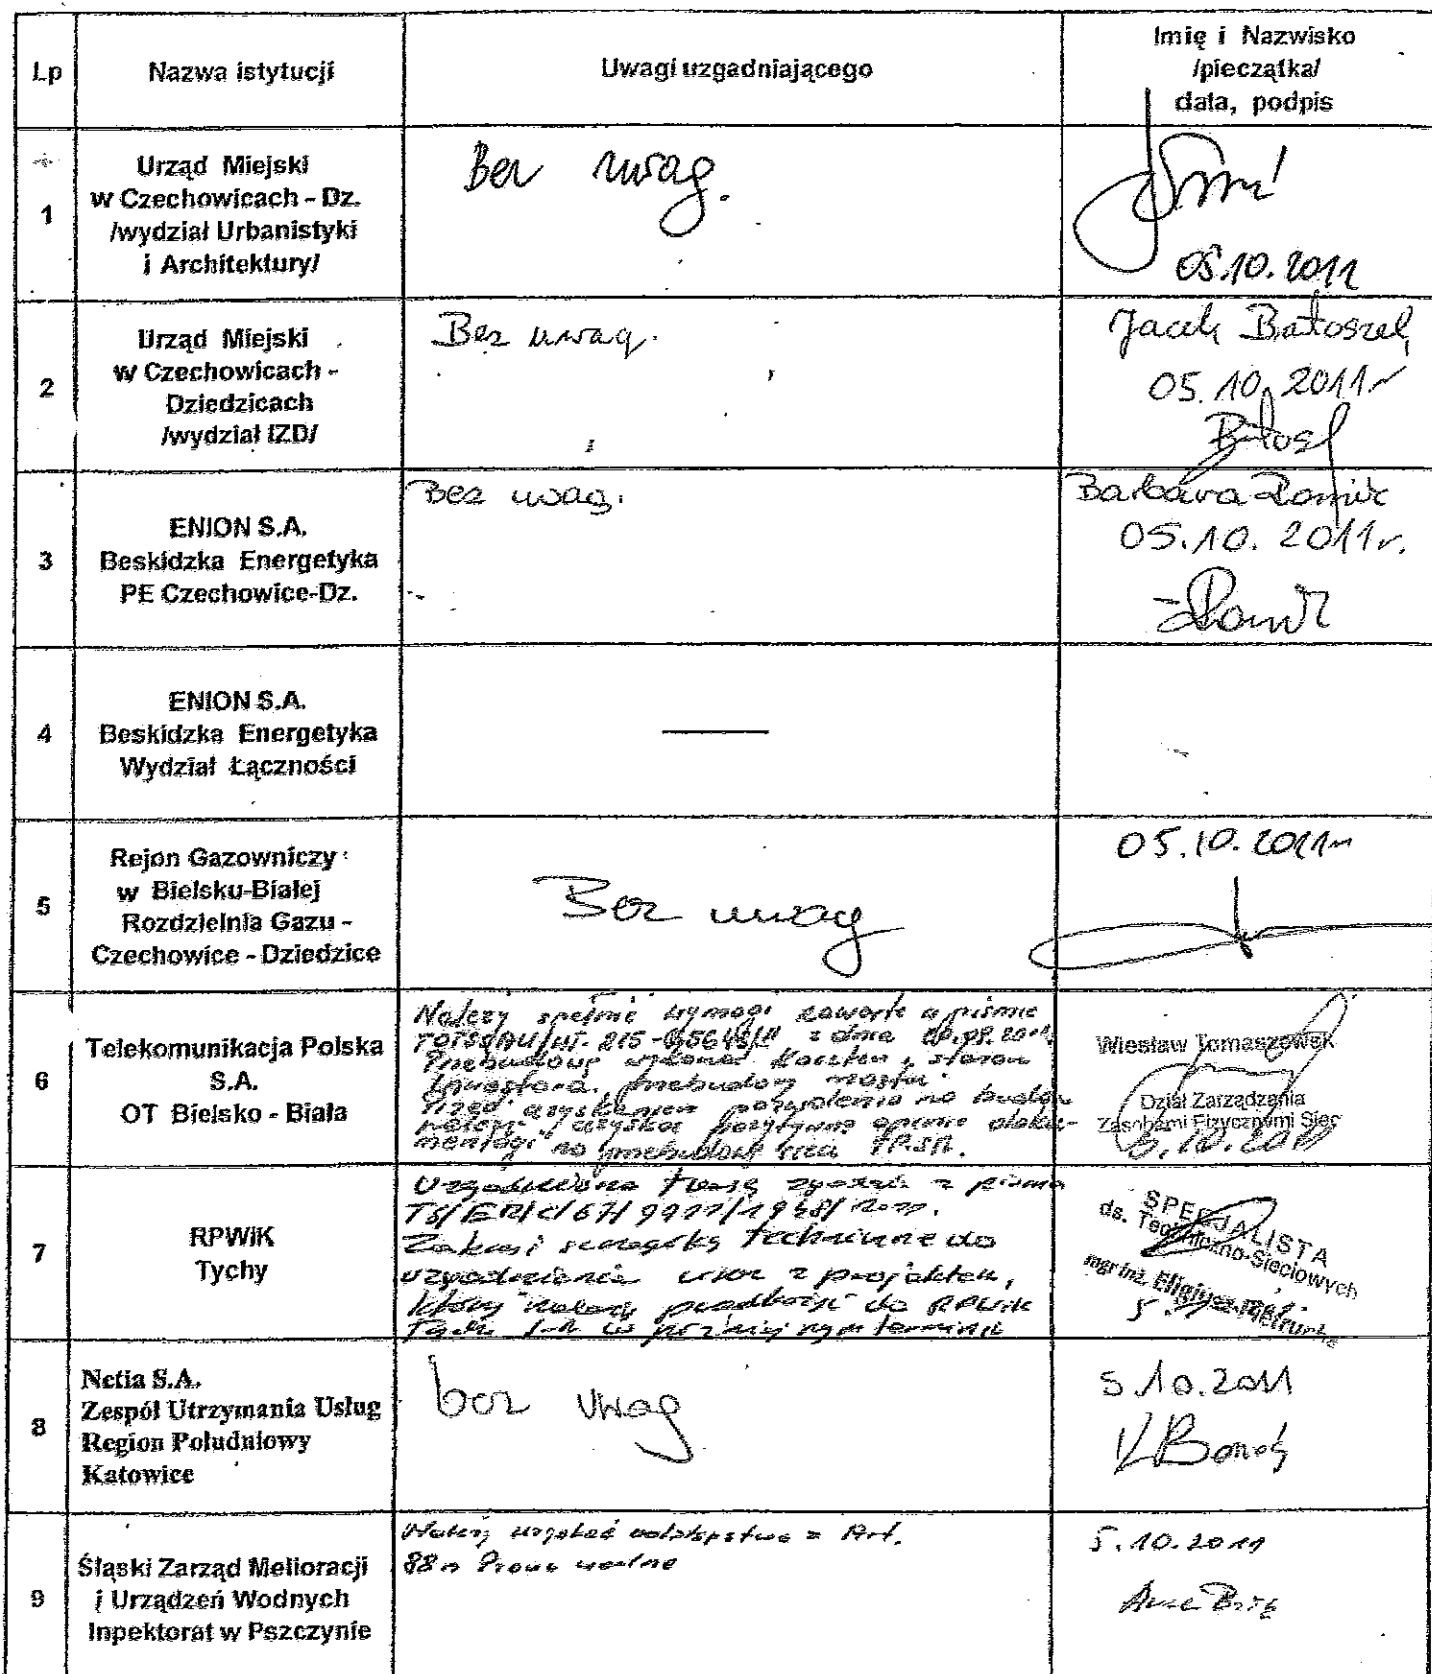 Lp
Nazwa istytucji
Uwagi uzgadniającego
Imię i Nazwisko
/pieczątka/
data, podpis
1
Urząd Miejski
w Czechowicach - Dz.
/wydział Urbanistyki
i Architektury/
Bez uwag.
05.10.2011
2
Urząd Miejski
w Czechowicach -
Dziedzicach
/wydział IZD/
Bez uwag.
Jacek
05.10.2011r
3
ENION S.A.
Beskidzka Energetyka
PE Czechowice-Dz.
Bez uwag.
Barbara
05.10.2011r.
4
ENION S.A.
Beskidzka Energetyka
Wydział Łączności
5
Rejon Gazowniczy
w Bielsku-Białej
Rozdzielnia Gazu -
Czechowice - Dziedzice
Bez uwag
05.10.2011r
6
Telekomunikacja Polska
S.A.
OT Bielsko - Biała
Należy spełnić wymogi zawarte w piśmie
z dnia
Przebudowę wykonać kosztem i staraniem
Inwestora przebudowy
Przed uzyskaniem pozwolenia na budowę
należy uzyskać pozytywną opinię doku-
mentacji na przebudowę sieci TP.SA.
Wiesław Tomaszewski
Dział Zarządzania
Zasobami Fizycznymi Sieci
5.10.2011
7
RPWiK
Tychy
Uzgodniono trasę zgodnie z pisma
Zakres i szczegóły techniczne do
uzgodnienia wraz z projektem,
który należy przedłożyć do RPWiK
Tychy w terminie
SPECJALISTA
ds. Techniczno-Sieciowych
mgr inż. Eligiusz Pietrucha
8
Netia S.A.
Zespół Utrzymania Usług
Region Południowy
Katowice
bez uwag
5.10.2011
9
Śląski Zarząd Melioracji
i Urządzeń Wodnych
Inpektorat w Pszczynie
Należy uzyskać odstępstwo z Art.
88n Prawo wodne
5.10.2011